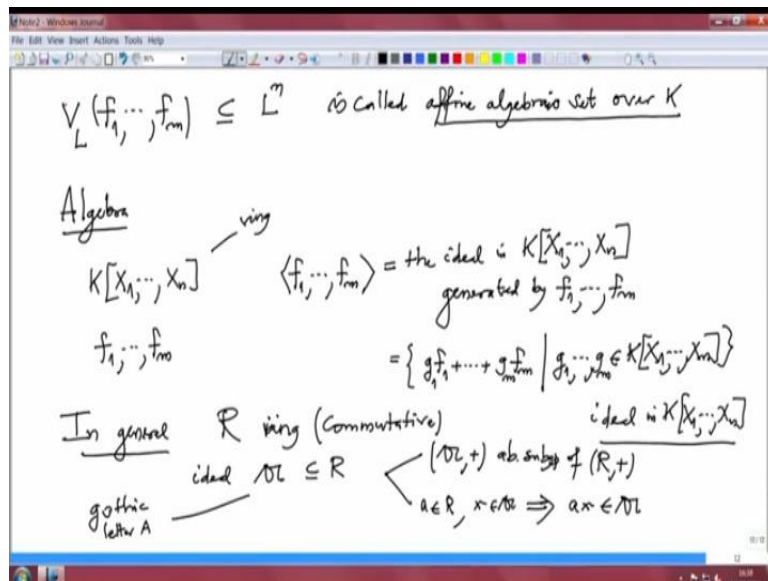 Note2 - Windows Journal
File Edit View Insert Actions Tools Help
V_L(f_1, ..., f_m) ⊆ L^n is called affine algebraic set over K
Algebra
ring
K[X_1, ..., X_n]
⟨f_1, ..., f_m⟩ = the ideal in K[X_1, ..., X_n]
generated by f_1, ..., f_m
f_1, ..., f_m
= { g_1 f_1 + ... + g_m f_m | g_1, ..., g_m ∈ K[X_1, ..., X_n] }
ideal in K[X_1, ..., X_n]
In general R ring (Commutative)
ideal 𝔄 ⊆ R
(𝔄, +) ab. subgp of (R, +)
a ∈ R, x ∈ 𝔄 ⇒ ax ∈ 𝔄
gothic
letter A